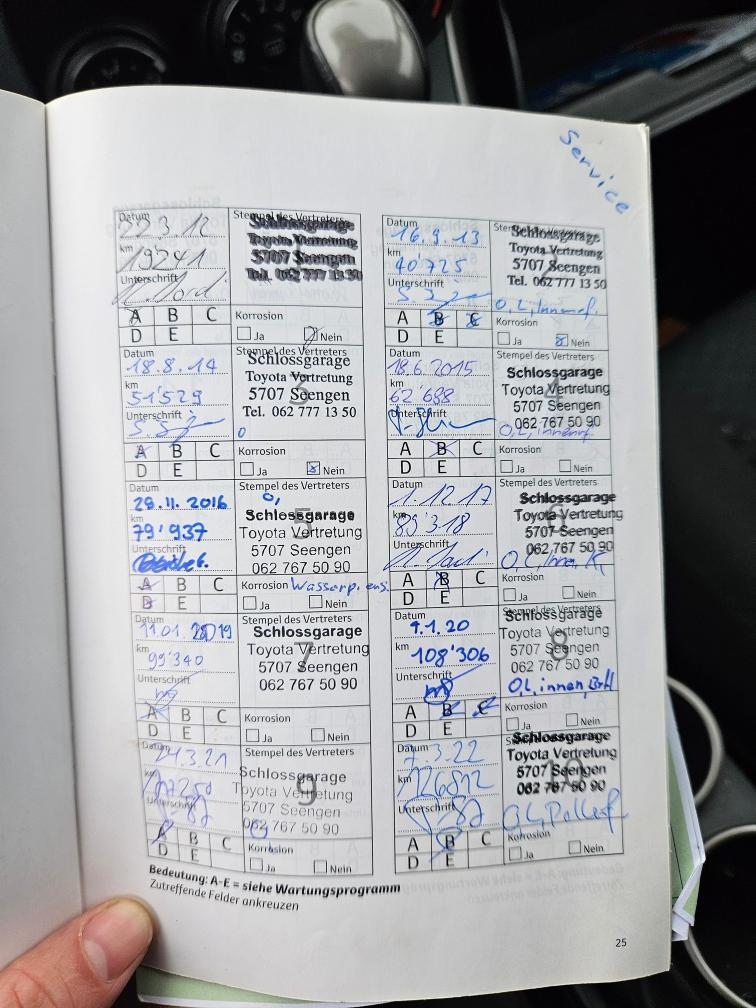 Service
Datum
22.3.12
km
19241
Unterschrift
Stempel des Vertreters
Schlossgarage
Toyota Vertretung
5707 Seengen
Tel. 062 777 13 50
A B C
D E
Korrosion
Ja Nein
Datum
16.9.13
km
40'725
Unterschrift
Schlossgarage
Toyota Vertretung
5707 Seengen
Tel. 062 777 13 50
A B C
D E
Korrosion
Ja Nein
Datum
18.8.14
km
51'529
Unterschrift
Stempel des Vertreters
3
Schlossgarage
Toyota Vertretung
5707 Seengen
Tel. 062 777 13 50
A B C
D E
Korrosion
Ja Nein
Datum
18.6.2015
km
62'688
Unterschrift
Stempel des Vertreters
4
Schlossgarage
Toyota Vertretung
5707 Seengen
062 767 50 90
A B C
D E
Korrosion
Ja Nein
Datum
29.11.2016
km
79'937
Unterschrift
Stempel des Vertreters
5
Schlossgarage
Toyota Vertretung
5707 Seengen
062 767 50 90
A B C
D E
Korrosion Wasserp. ers.
Ja Nein
Datum
1.12.17
km
89'318
Unterschrift
Stempel des Vertreters
6
Schlossgarage
Toyota Vertretung
5707 Seengen
062 767 50 90
A B C
D E
Korrosion
Ja Nein
Datum
11.01.2019
km
99'340
Unterschrift
Stempel des Vertreters
7
Schlossgarage
Toyota Vertretung
5707 Seengen
062 767 50 90
A B C
D E
Korrosion
Ja Nein
Datum
9.1.20
km
108'306
Unterschrift
Stempel des Vertreters
8
Schlossgarage
Toyota Vertretung
5707 Seengen
062 767 50 90
O,L, innen,
A B C
D E
Korrosion
Ja Nein
Datum
24.3.21
km
Unterschrift
Stempel des Vertreters
9
Schlossgarage
Toyota Vertretung
5707 Seengen
062 767 50 90
A B C
D E
Korrosion
Ja Nein
Datum
7.3.22
km
126812
Unterschrift
10
Schlossgarage
Toyota Vertretung
5707 Seengen
062 767 50 90
O,L, Pollenf.
A B C
D E
Korrosion
Ja Nein
Bedeutung: A-E = siehe Wartungsprogramm
Zutreffende Felder ankreuzen
25